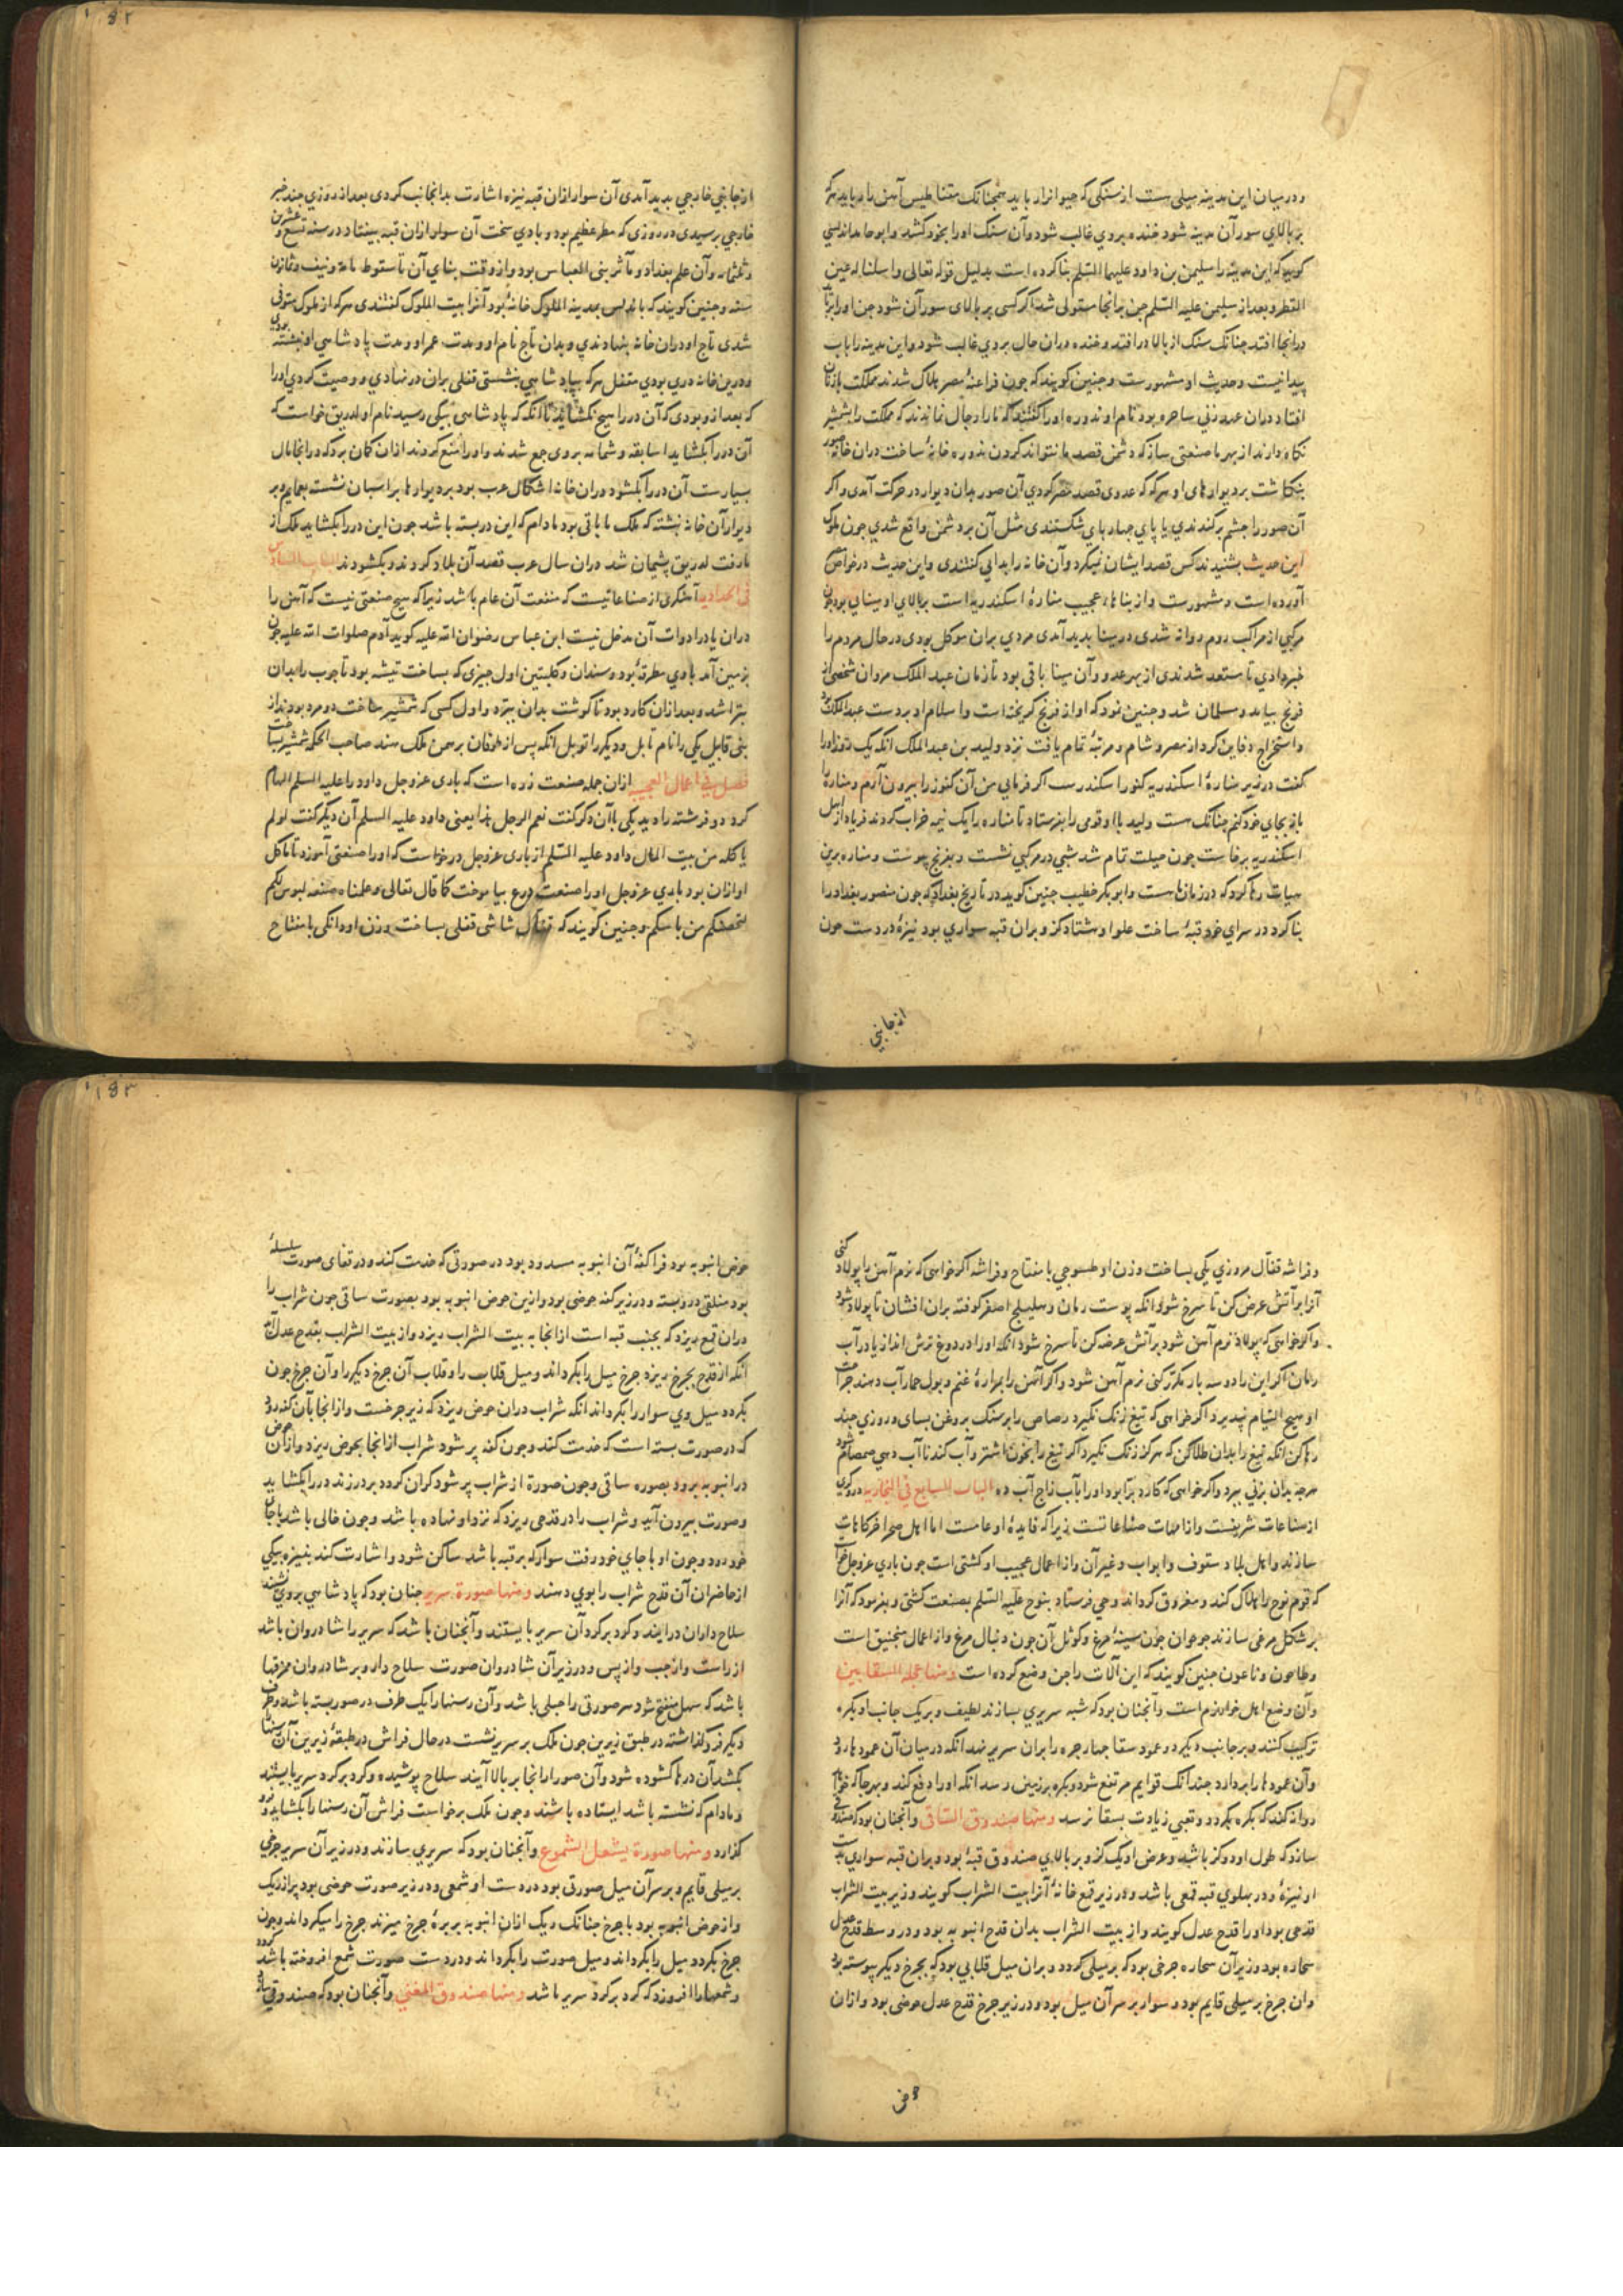 و در میان این مدینه میلی ست از سنکی که حیوانرا رباید همجنانک مقناطیس آهن را رباید هرکه
بر بالای سور آن مدینه شود خنده بروی غالب شود و آن سنک او را بخود کشد و ابو حامد اندلسی
کوید که این مدینه را سلیمن بن داود علیهما السّلم بنا کرده است بدلیل قوله تعالی واسلنا له عین
القطر و بعد از سلیمن علیه السّلم جن برانجا مستولی شد اکر کسی بر بالای سور آن شود جن او را
درانجا افتد جنانک سنک از بالا درافتد و خنده دران حال بروی غالب شود و این مدینه را باب
پیدا نیست و حدیث او مشهورست و جنین کویند که جون فراعنهٔ مصر هلاک شدند مملکت بازنان
افتاد دران عهد زنی ساحره بود نام او ندوره او را کفتند که ما را رجال نماندند که مملکت را بشمشیر
نکاه دارند از بهر ما صنعتی ساز که دشمن قصد ما نتواند کردن ندوره خانهٔ ساخت دران خانه صور
بنکاشت بر دیوارهای او هرکه که عدوی قصد مصر کردی آن صور بدان دیوار در حرکت آمدی و اکر
آن صور را جشم برکندندی یا پای جهارپای شکستندی مثل آن بر دشمن واقع شدی جون ملوک
این حدیث بشنیدند کس قصد ایشان نمیکرد و آن خانه را بدابی کفتندی و این حدیث در خواص
آورده است و مشهورست و از بناهاء عجیب منارهٔ اسکندریه است بر بالای او مینایی بود جون
مرکبی از مراکب روم روانه شدی در مینا بدید آمدی مردی بران موکل بودی در حال مردم را
خبر دادی تا مستعد شدندی از بهر عدو و آن مینا باقی بود تا زمان عبد الملک مروان شخصی از
فرنج بیامد و مسلمان شد و جنین نمود که او از فرنج کریخته است و اسلام او بر دست عبد الملک بود
و استخراج دفاین کرد از مصر و شام و مرتبهٔ تمام یافت نزد ولید بن عبد الملک انکه یک روز او را
کفت در زیر منارهٔ اسکندریه کنوز اسکندرست اکر فرمایی من آن کنوز را بیرون آرم و مناره
باز بجای خود کنم جنانک هست ولید با او قومی را بفرستاد تا مناره را یک نیمه خراب کردند فریاد از اهل
اسکندریه برخاست جون حیلت تمام شد شبی در مرکبی نشست و بفرنج پیوست و مناره برین
هیات رها کرد که درزمانها هست و ابو بکر خطیب جنین کوید در تاریخ بغداد که جون منصور بغداد را
بنا کرد در سرای خود قبهٔ ساخت علو او هشتاد کز و بران قبه سواری بود نیزهٔ در دست جون
از جانبی
از جانبی خارجی بدید آمدی آن سوار ازان قبه نیزه اشارت بدانجانب کردی بعد از روزی جند خبر
خارجی برسیدی در روزی که مطر عظیم بود و بادی سخت آن سوار ازان قبه بیفتاد در سنه تسع و عشرین
و ثلثمائه و آن علم بغداد و مآثر بنی العباس بود و از وقت بنای آن تا سقوط مائه و نیف و ثمانون
سنه و جنین کویند که باندلس بمدینه الملوک خانهٔ بود آنرا بیت الملوک کفتندی هرکه از ملوک متوفی
شدی تاج او دران خانه بنهادندی و بدان تاج نام او و مدت عمر او و مدت پادشاهی او نبشته بودی
و درین خانه دری بودی مقفل هرکه بپادشاهی بنشستی قفلی بران در نهادی و وصیت کردی او را
که بعد ازو بودی که آن در را هیج نکشاید تا انکه که پادشاهی بیکی رسید نام او لدریق خواست که
آن در را بکشاید اساقفه و شمامسه بروی جمع شدند و او را منع کردند ازان کمان برد که درانجا مال
بسیارست آن در را بکشود دران خانه اشکال عرب بود بر دیوارها بر اسبان نشسته بعمایم و بر
دیوار آن خانه نبشته که ملک ما باقی بود مادام که این در بسته باشد جون این در را بکشاید ملک از
ما رفت لدریق پشیمان شد دران سال عرب قصد آن بلاد کردند و بکشودند الباب السادس
فی الحدادیه آهنکری از صناعاتیست که منفعت آن عام باشد زیرا که هیج صنعتی نیست که آهن را
دران یا در ادوات آن مدخل نیست ابن عباس رضوان الله علیه کوید آدم صلوات الله علیه جون
بزمین آمد با وی مطرقهٔ بود و سندان و کلبتین اول جیزی که بساخت تیشه بود تا جوب را بدان
بتراشد و بعد ازان کارد بود تا کوشت بدان ببرّد و اول کسی که شمشیر ساخت دو مرد بودند از
بنی قابیل یکی را نام تابل و دیکر را توبل انکه پس از طوفان برهمن ملک هند صاحب الحکمه شمشیر ساخت
فصل فی اعمال العجیبه ازان جمله صنعت زره است که باری عز و جل داود را علیه السلم الهام
کرد دو فرشته را دید یکی با آن دکر کفت نعم الرجل هذا یعنی داود علیه السلم آن دیکر کفت لو لم
یاکله من بیت المال داود علیه السّلم از باری عز و جل درخواست که او را صنعتی آموزد تا ماکل
او ازان بود باری عز و جل او را صنعت درع بیاموخت کما قال تعالی و علمناه صنعه لبوس لکم
لتحصنکم من باسکم و جنین کویند که قفال شاشی قفلی بساخت وزن او دانکی با مفتاح
و فراشه قفال مروزی یکی بساخت وزن او طسوجی با مفتاح و فراشه اکر خواهی که نرم آهن را پولاد کنی
آنرا بر آتش عرض کن تا سرخ شود انکه پوست رمان و هلیلج اصفر کوفته بران افشان تا پولاد شود
و اکر خواهی که پولاد نرم آهن شود بر آتش عرضه کن تا سرخ شود انکه او را در دوغ ترش انداز یا در آب
رمان اکر این را دو سه بار مکرّر کنی نرم آهن شود و اکر آهن را بمرارهٔ غنم و بول حمار آب دهند جراحت
او هیج التیام نپذیرد اکر خواهی که تیغ زنک نکیرد رصاص را بر سنک بروغن بسای و روزی جند
رها کن انکه تیغ را بدان طلا کن که هرکز زنک نکیرد اکر تیغ را بخون اشتر و آب کندنا آب دهی صمصام شود
هرجه بدان بزنی ببرد و اکر خواهی که کارد برّا بود او را بآب زاج آب ده الباب السابع فی النجاریه درودکری
از صناعات شریفست و از امهات صناعاتست زیرا که فایدهٔ او عامست اما اهل صحرا خرکاهات
سازند و اهل بلاد سقوف و ابواب و غیر آن و از اعمال عجیب او کشتی است جون باری عز و جل خواست
که قوم نوح را هلاک کند و مغروق کرداند وحی فرستاد بنوح علیه السّلم بصنعت کشتی و بفرمود که آنرا
بر شکل مرغی سازند جوجوان جون سینهٔ مرغ و کوثل آن جون دنبال مرغ و از اعمال منجنیق است
و طاحون و ناعون جنین کویند که این آلات را جن وضع کرده است و منها عجله السقایین
و آن وضع اهل خوارزم است و آنجنان بود که شبه سریری بسازند لطیف و بر یک جانب او بکره
ترکیب کنند و بر جانب دیکر دو عمود سقا جهار جره را بران سریر نهد انکه در میان آن عمودها رود
و آن عمودها را بردارد جندانک قوایم مرتفع شود و بکره بر زمین رسد انکه او را دفع کند و بهرجا که خواهد
روانه کند که بکره بکردد و تعبی زیادت بسقا نرسد و منها صندوق الساقی و آنجنان بود که صندوقی
سازد که طول او دو کز باشد و عرض او یک کز و بر بالای صندوق قبهٔ بود و بران قبه سواری بدست
او نیزهٔ و در پهلوی قبه قمعی باشد و در زیر قمع خانهٔ آنرا بیت الشراب کویند و زیر بیت الشراب
قدحی بود او را قدح عدل کویند و از بیت الشراب بدان قدح انبوبه بود و در وسط قدح عدل
سحاره بود و زیر آن سحاره جرخی بود که بر میلی کردد و بران میل قلابی بود که بجرخ دیکر پیوسته بود
و ان جرخ بر میلی قایم بود و سوار بر سر آن میل بود و در زیر جرخ قدح عدل حوضی بود و ازان
حوض
حوض انبوبه بود فراکفهٔ آن انبوبه مسدود بود در صورتی که خدمت کند و در قفای صورت سلسلهٔ
بود منلقی در و بسته و در زیر کفه حوضی بود و ازین حوض انبوبه بود بصورت ساقی جون شراب را
دران قمع ریزد که بجنب قبه است ازانجا به بیت الشراب ریزد و از بیت الشراب بقدح عدل آید
انکه از قدح بجرخ ریزد جرخ میل را بکرداند و میل قلاب را و قلاب آن جرخ دیکر را و آن جرخ جون
بکردد میل وی سوار را بکرداند انکه شراب دران حوض ریزد که زیر جرخست و ازانجا بآن کفه رود
که در صورت بسته است که خدمت کند و جون کفه پر شود شراب ازانجا بحوض ریزد و ازان حوض
در انبوبه برود بصوره ساقی و جون صورة از شراب پر شود کران کردد بر در زند در را بکشاید
و صورت بیرون آید و شراب را در قدحی ریزد که نزد او نهاده باشد و جون خالی باشد باجای
خود رود و جون او باجای خود رفت سوار که بر قبه باشد ساکن شود و اشارت کند بنیزه بیکی
از حاضران آن قدح شراب را بوی دهند و منها صورة سریر جنان بود که پادشاهی بروی نشیند
سلاح داران درآیند و کرد بر کرد آن سریر بایستند و آنجنان باشد که سریر را شادروان باشد
از راست و از جب و از پس و در زیر آن شادروان صورت سلاح دار و بر شادروان مخرقها
باشد که سهل منفتح شود هر صورتی را حبلی باشد و آن رسنها را یک طرف در صور بسته باشد و طرف
دیکر فروکذاشته در طبق زیرین جون ملک بر سریر نشست در حال فراش در طبقهٔ زیرین آن رسنها
بکشد آن درها کشوده شود و آن صور ازانجا بر بالا آیند سلاح پوشیده و کرد بر کرد سریر بایستند
و مادام که نشسته باشد ایستاده باشند و جون ملک برخواست فراش آن رسنها را بکشاید و فرو
کزارد و منها صورة یشعل الشموع و آنجنان بود که سریری سازند و در زیر آن سریر جرخی
بر میلی قایم و بر سر آن میل صورتی بود در دست او شمعی و در زیر صورت حوضی بود پر از ریک
و از حوض انبوبه بود با جرخ جنانک ریک ازان انبوبه بر پرهٔ جرخ میزند جرخ را میکرداند و جون
جرخ بکردد میل را بکرداند و میل صورت را بکرداند و در دست صورت شمع افروخته باشد
و شمعها را افروزد که کرد بر کرد سریر باشد و منها صندوق المغنی و آنجنان بود که صندوقی سازند